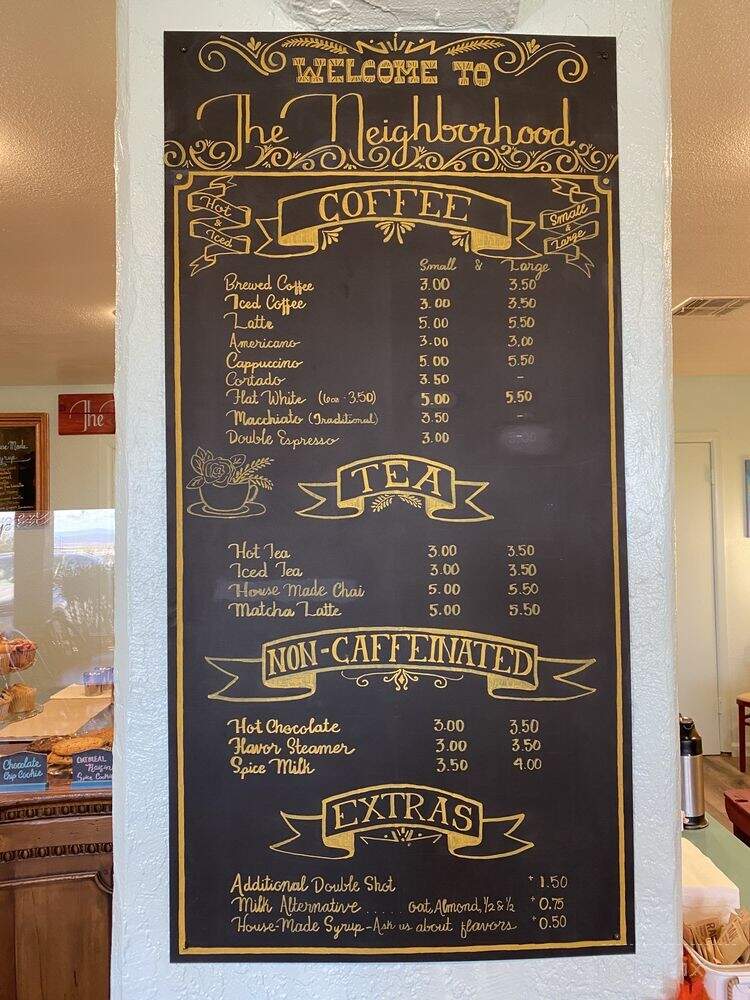 WELCOME TO
The Neighborhood
Hot & Iced
COFFEE
Small & Large
Small & Large
Brewed Coffee 3.00 3.50
Iced Coffee 3.00 3.50
Latte 5.00 5.50
Americano 3.00 3.00
Cappuccino 5.00 5.50
Cortado 3.50 -
Flat White (6oz - 3.50) 5.00 5.50
Macchiato (Traditional) 3.50 -
Double Espresso 3.00
TEA
Hot Tea 3.00 3.50
Iced Tea 3.00 3.50
House Made Chai 5.00 5.50
Matcha Latte 5.00 5.50
NON-CAFFEINATED
Hot Chocolate 3.00 3.50
Flavor Steamer 3.00 3.50
Spice Milk 3.50 4.00
EXTRAS
Additional Double Shot +1.50
Milk Alternative ..... oat, Almond, ½ & ½ +0.75
House-Made Syrup - Ask us about flavors +0.50
The
Chocolate
Chip Cookie
OATMEAL
Raisin
Spice Cookie